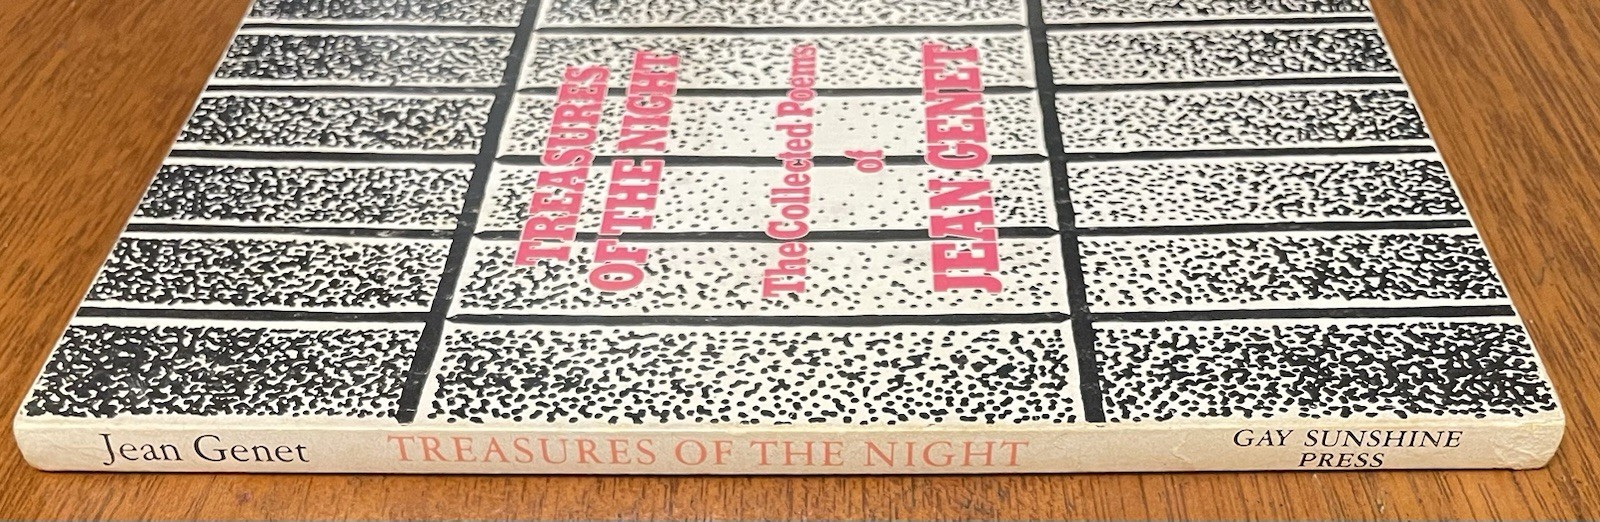 TREASURES
OF THE NIGHT
The Collected Poems
of
JEAN GENET
Jean Genet
TREASURES OF THE NIGHT
GAY SUNSHINE
PRESS